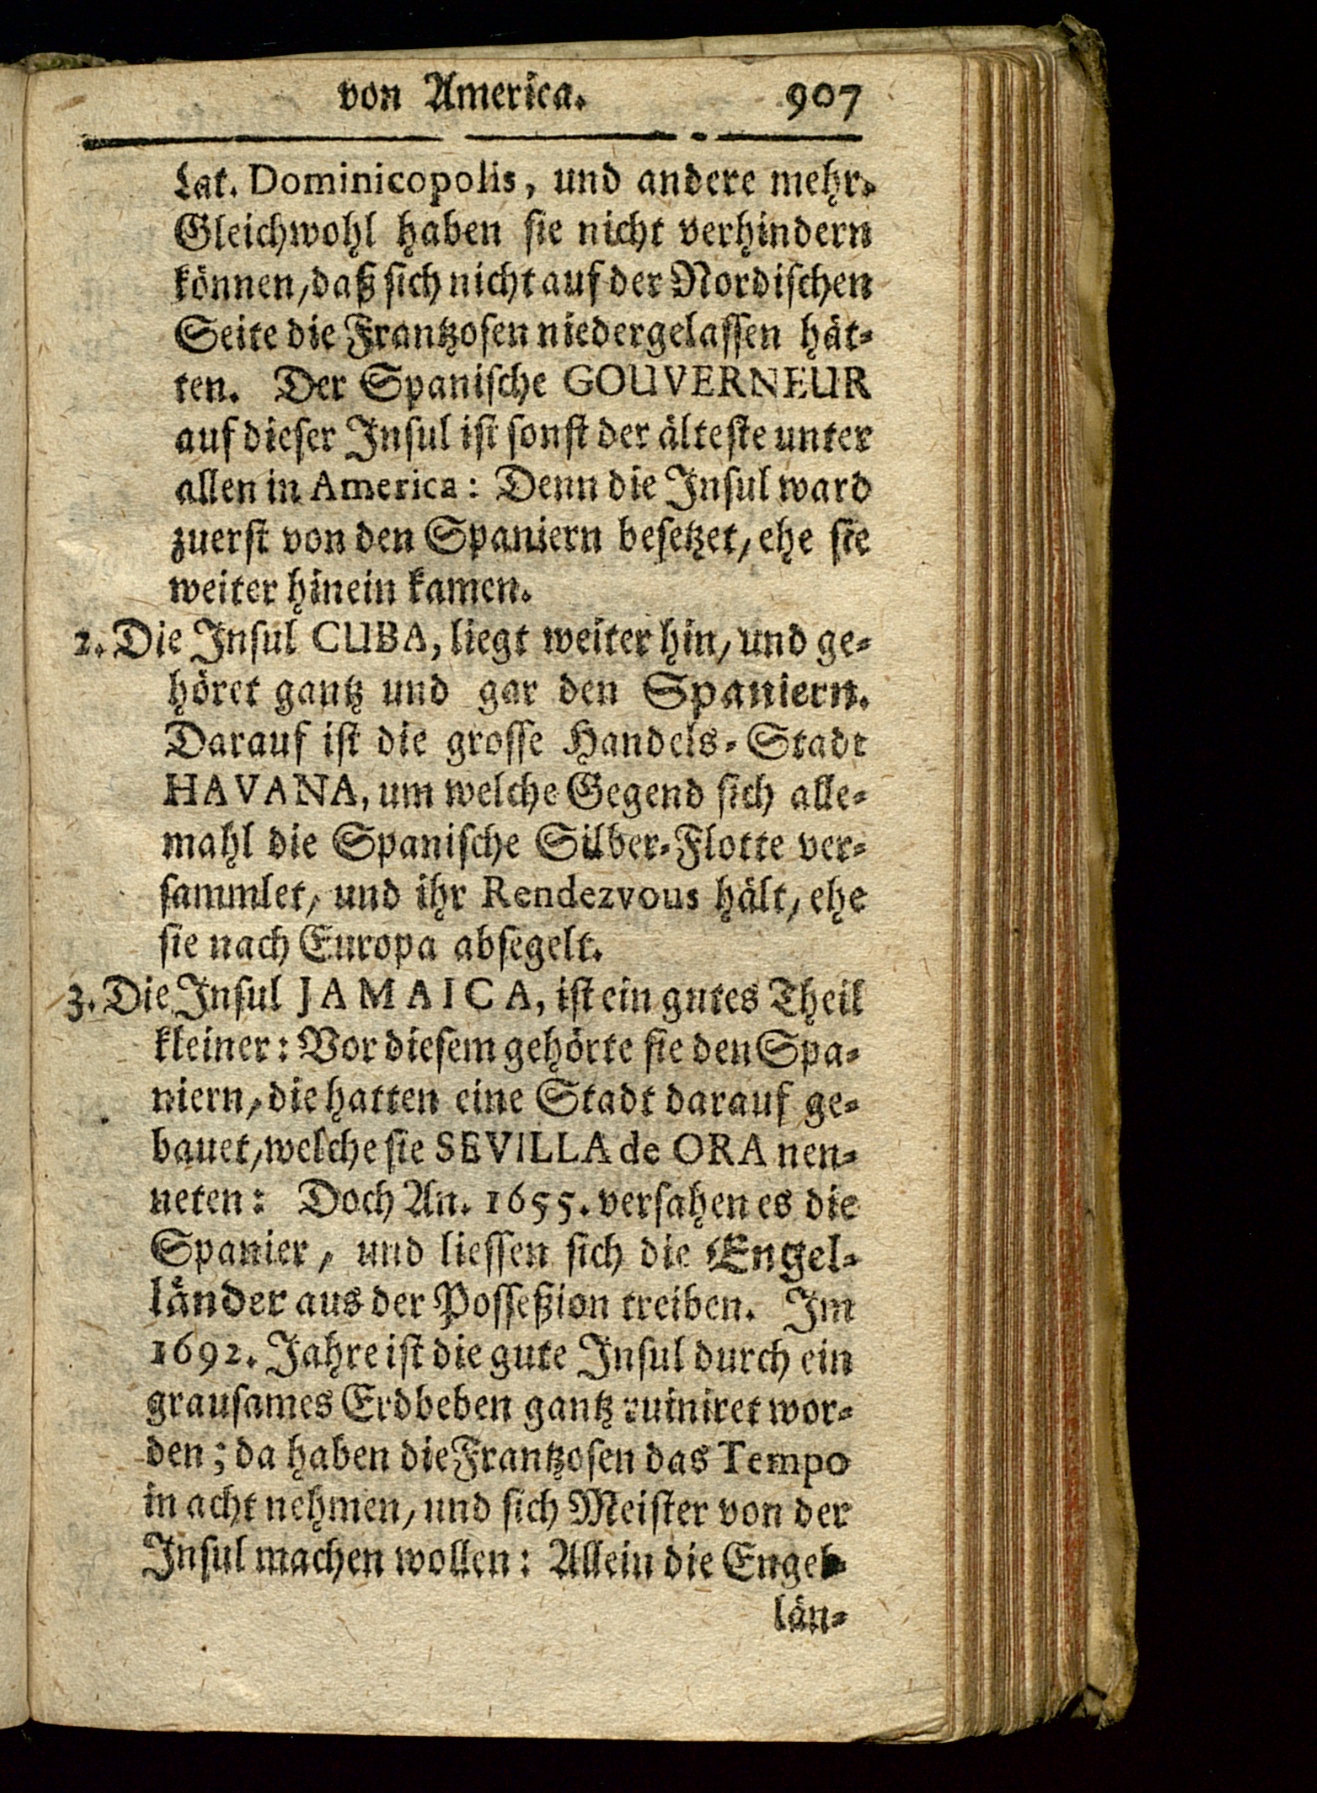 von America. 907
Lat. Dominicopolis, und andere mehr.
Gleichwohl haben sie nicht verhindern
können, daß sich nicht auf der Nordischen
Seite die Frantzosen niedergelassen hät-
ten. Der Spanische GOUVERNEUR
auf dieser Insul ist sonst der älteste unter
allen in America: Denn die Insul ward
zuerst von den Spaniern besetzet, ehe sie
weiter hinein kamen.
2. Die Insul CUBA, liegt weiter hin, und ge-
höret gantz und gar den Spaniern.
Darauf ist die grosse Handels-Stadt
HAVANA, um welche Gegend sich alle-
mahl die Spanische Silber-Flotte ver-
sammlet, und ihr Rendezvous hält, ehe
sie nach Europa absegelt.
3. Die Insul JAMAICA, ist ein gutes Theil
kleiner: Vor diesem gehörte sie den Spa-
niern, die hatten eine Stadt darauf ge-
bauet, welche sie SEVILLA de ORA nen-
neten: Doch An. 1655. versahen es die
Spanier, und liessen sich die Engel-
länder aus der Posseßion treiben. Im
1692. Jahre ist die gute Insul durch ein
grausames Erdbeben gantz ruiniret wor-
den; da haben die Frantzosen das Tempo
in acht nehmen, und sich Meister von der
Insul machen wollen: Allein die Engel-
län-